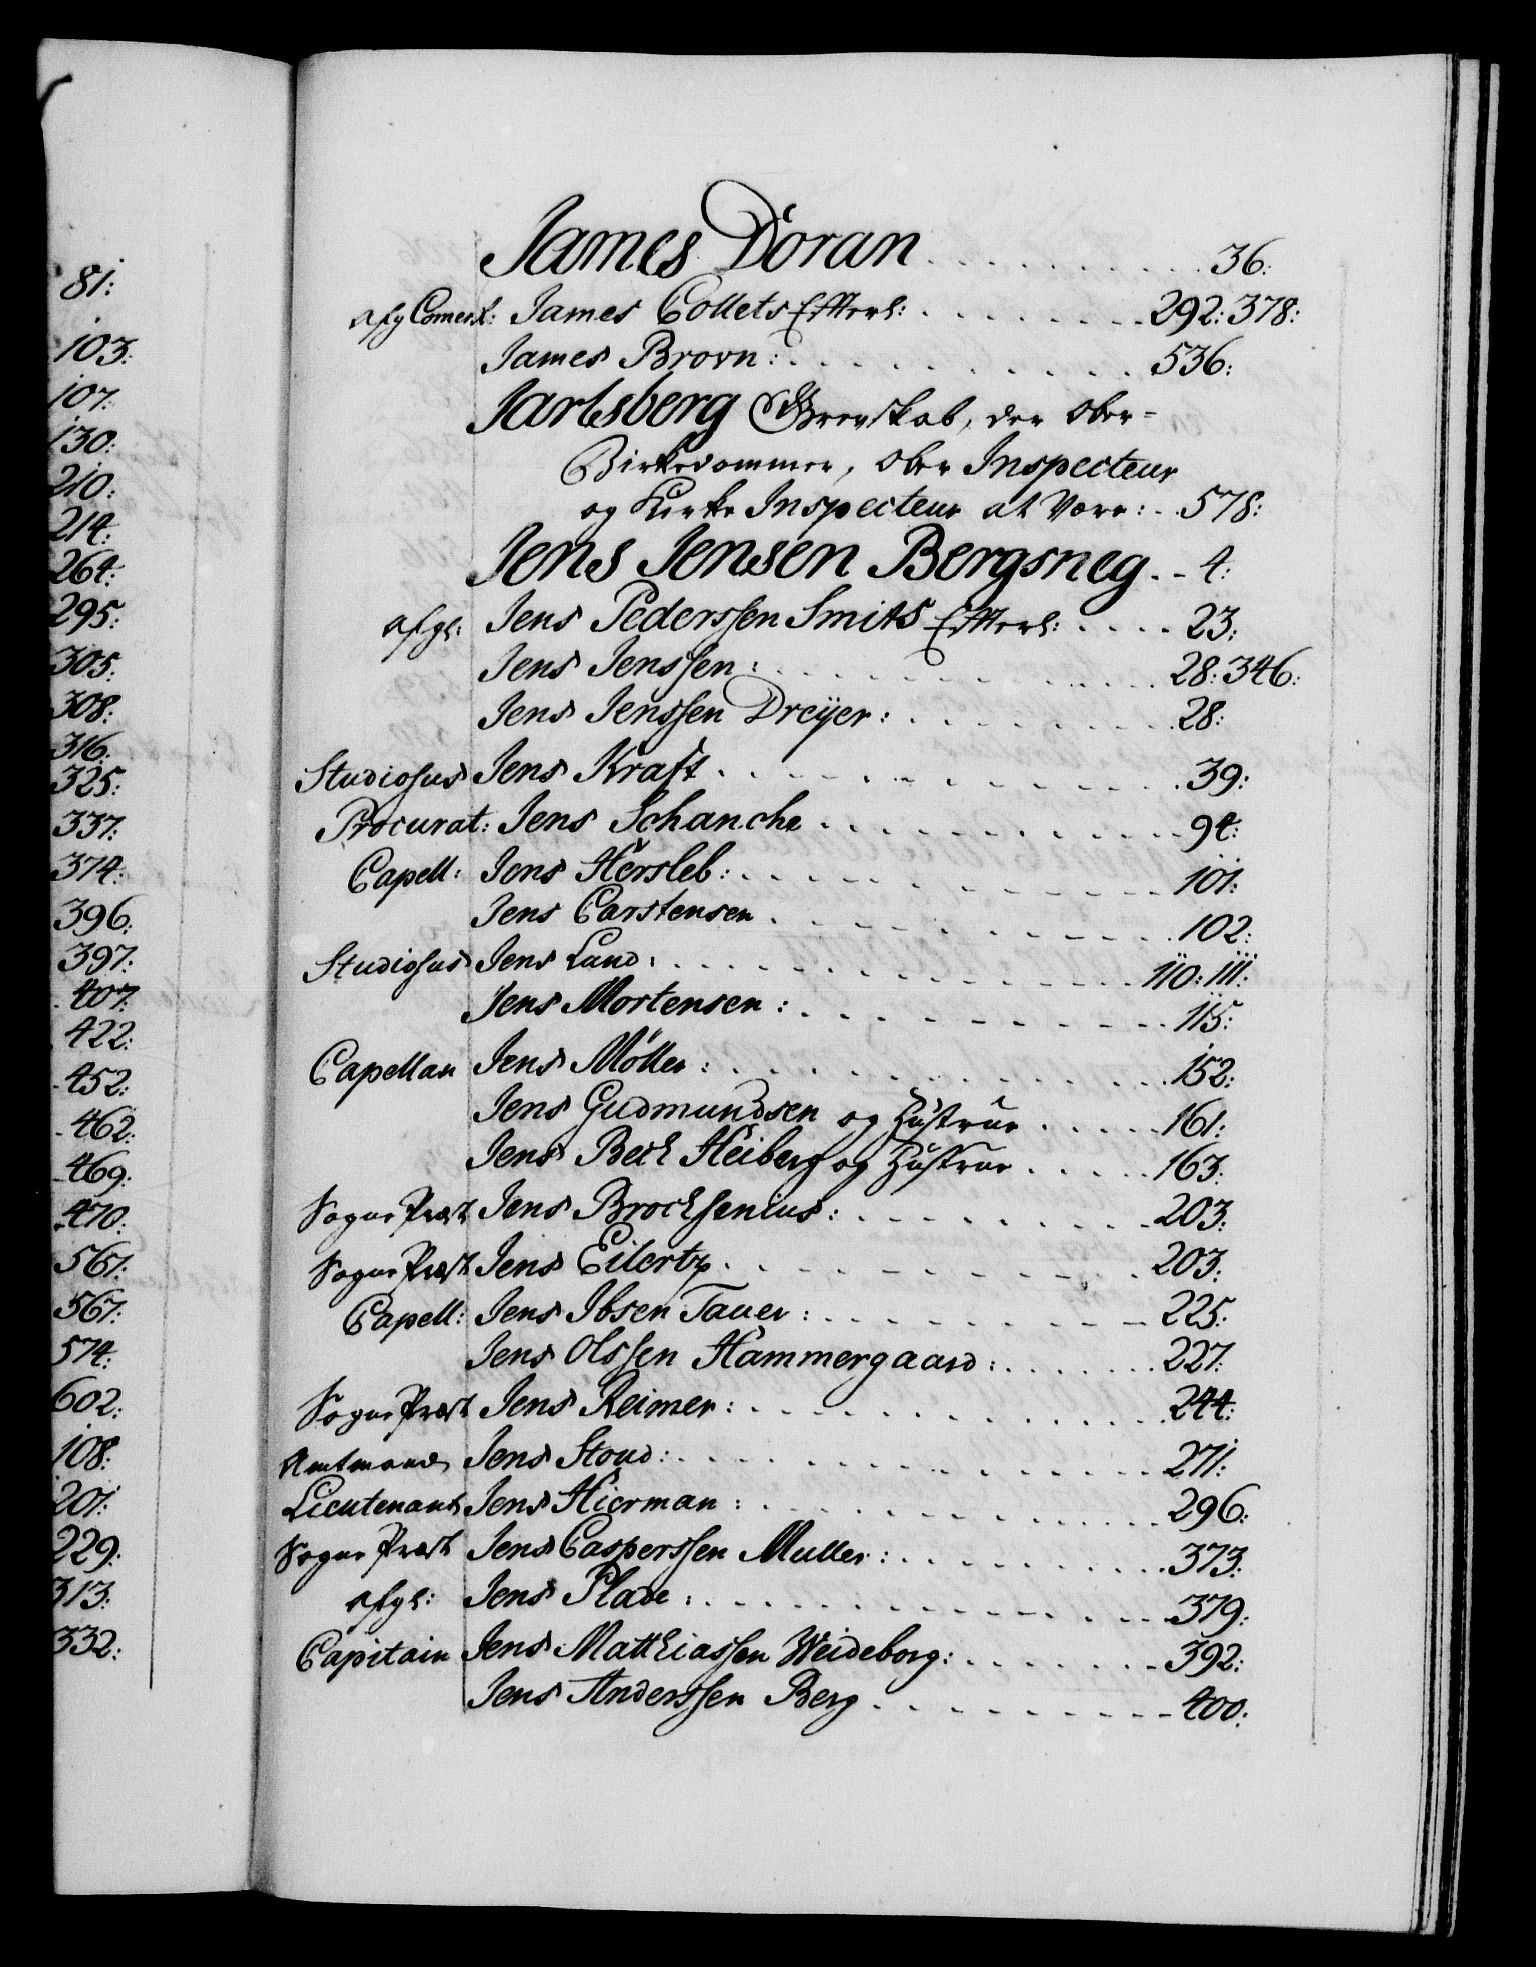 81:
103:
107:
130:
210:
214:
264:
295:
305:
308:
316:
325:
337:
374:
396:
397:
407:
422:
452:
462:
469:
470:
567:
567:
574:
602:
108:
201:
229:
313:
332:
James Doran . . . 36:
afg Comerl: James Collets Efterl: . . . 292: 378:
James Brovn: . . . 536:
Jarlsberg Grevskab, der Ober-
Birkedommer, Ober Inspecteur
og Kirke Inspecteur at være: . . 578:
Jens Jensen Bergsneg . . 4:
afgl: Jens Pederssen Smits Efterl: . . . 23:
Jens Jenssen: . . . 28: 346:
Jens Jenssen Dreyer: . . . 28:
Studiosus Jens Kraft . . . 39:
Procurat: Jens Schanche . . . 94:
Capell: Jens Hersleb: . . . 101:
Jens Carstensen . . . 102:
Studiosus Jens Lund: . . . 110: 111:
Jens Mortensen: . . . 115:
Capellan Jens Möller: . . . 152:
Jens Gudmundsen og Hustrue . . . 161:
Jens Bech Heiberg og Hustrue . . . 163:
Sogne Præst Jens Brochsenius: . . . 203:
Sogne Præst Jens Eilertz . . . 203:
Capell: Jens Ibsen Tauer: . . . 225:
Jens Olssen Hammergaard: . . . 227:
Sogne Præst Jens Reimer: . . . 244:
Amtmand Jens Stoud: . . . 271:
Lieutenant Jens Hierman: . . . 296:
Sogne Præst Jens Casperssen Muller: . . . 373:
afgl: Jens Plade: . . . 379:
Capitain Jens Matthiassen Weideborg: . . . 392:
Jens Anderssen Berg . . . 400: